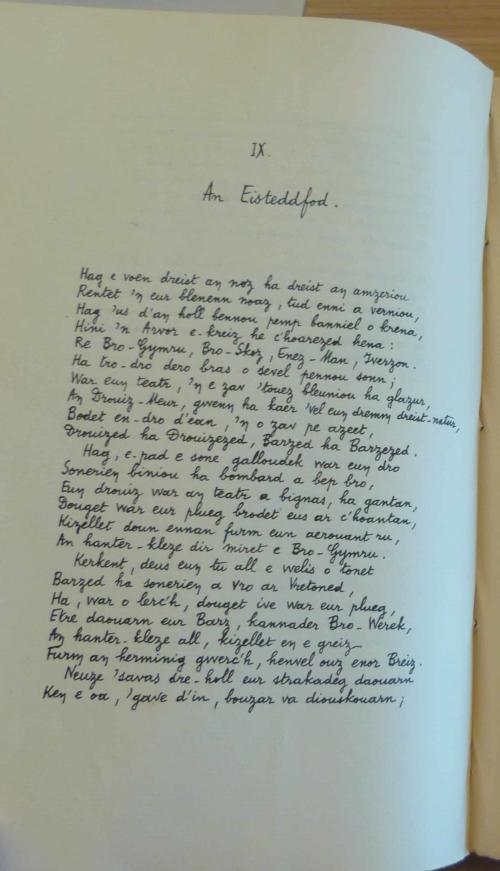 IX.
An Eisteddfod.
Hag e voen dreist an noz ha dreist an amzeriou
Rentet 'n eur blenenn noaz, tud enni a verniou,
Hag 'us d'an holl bennou pemp banniel o krena,
Hini 'n Arvor e-kreiz he c'hoarezed hena:
Re Bro-Gymru, Bro-Skoz, Enez-Man, Iverzon.
Ha tro-dro dero bras o sevel pennou sonn;
War eun teatr, 'n e zav 'touez bleuniou ha glazur,
An Drouiz-Meur, gwenn ha kaer 'vel eun dremm dreist-natur,
Bodet en-dro d'ean, 'n o zav pe azeet,
Drouized ha Drouizezed, Barzed ha Barzezed.
Hag, e-pad e sone galloudek war eun dro
Sonerien biniou ha bombard a bep bro,
Eun drouiz war an teatr a bignas, ha gantan,
Douget war eur plueg brodet eus ar c'hoantan,
Kizellet doun ennan furm eun aerouant ru,
An hanter-kleze dir miret e Bro-Gymru.
Kerkent, deus eun tu all e welis o tonet
Barzed ha sonerien a Vro ar Vretoned,
Ha, war o lerc'h, douget ive war eur plueg,
Etre daouarn eur Barz, kannader Bro-Werek,
An hanter-kleze all, kizellet en e greiz
Furm an herminig gwerc'h, henvel ouz enor Breiz.
Neuze 'savas dre-holl eur strakadeg daouarn
Ken e oa, 'gave d'in, bouzar va diouskouarn;